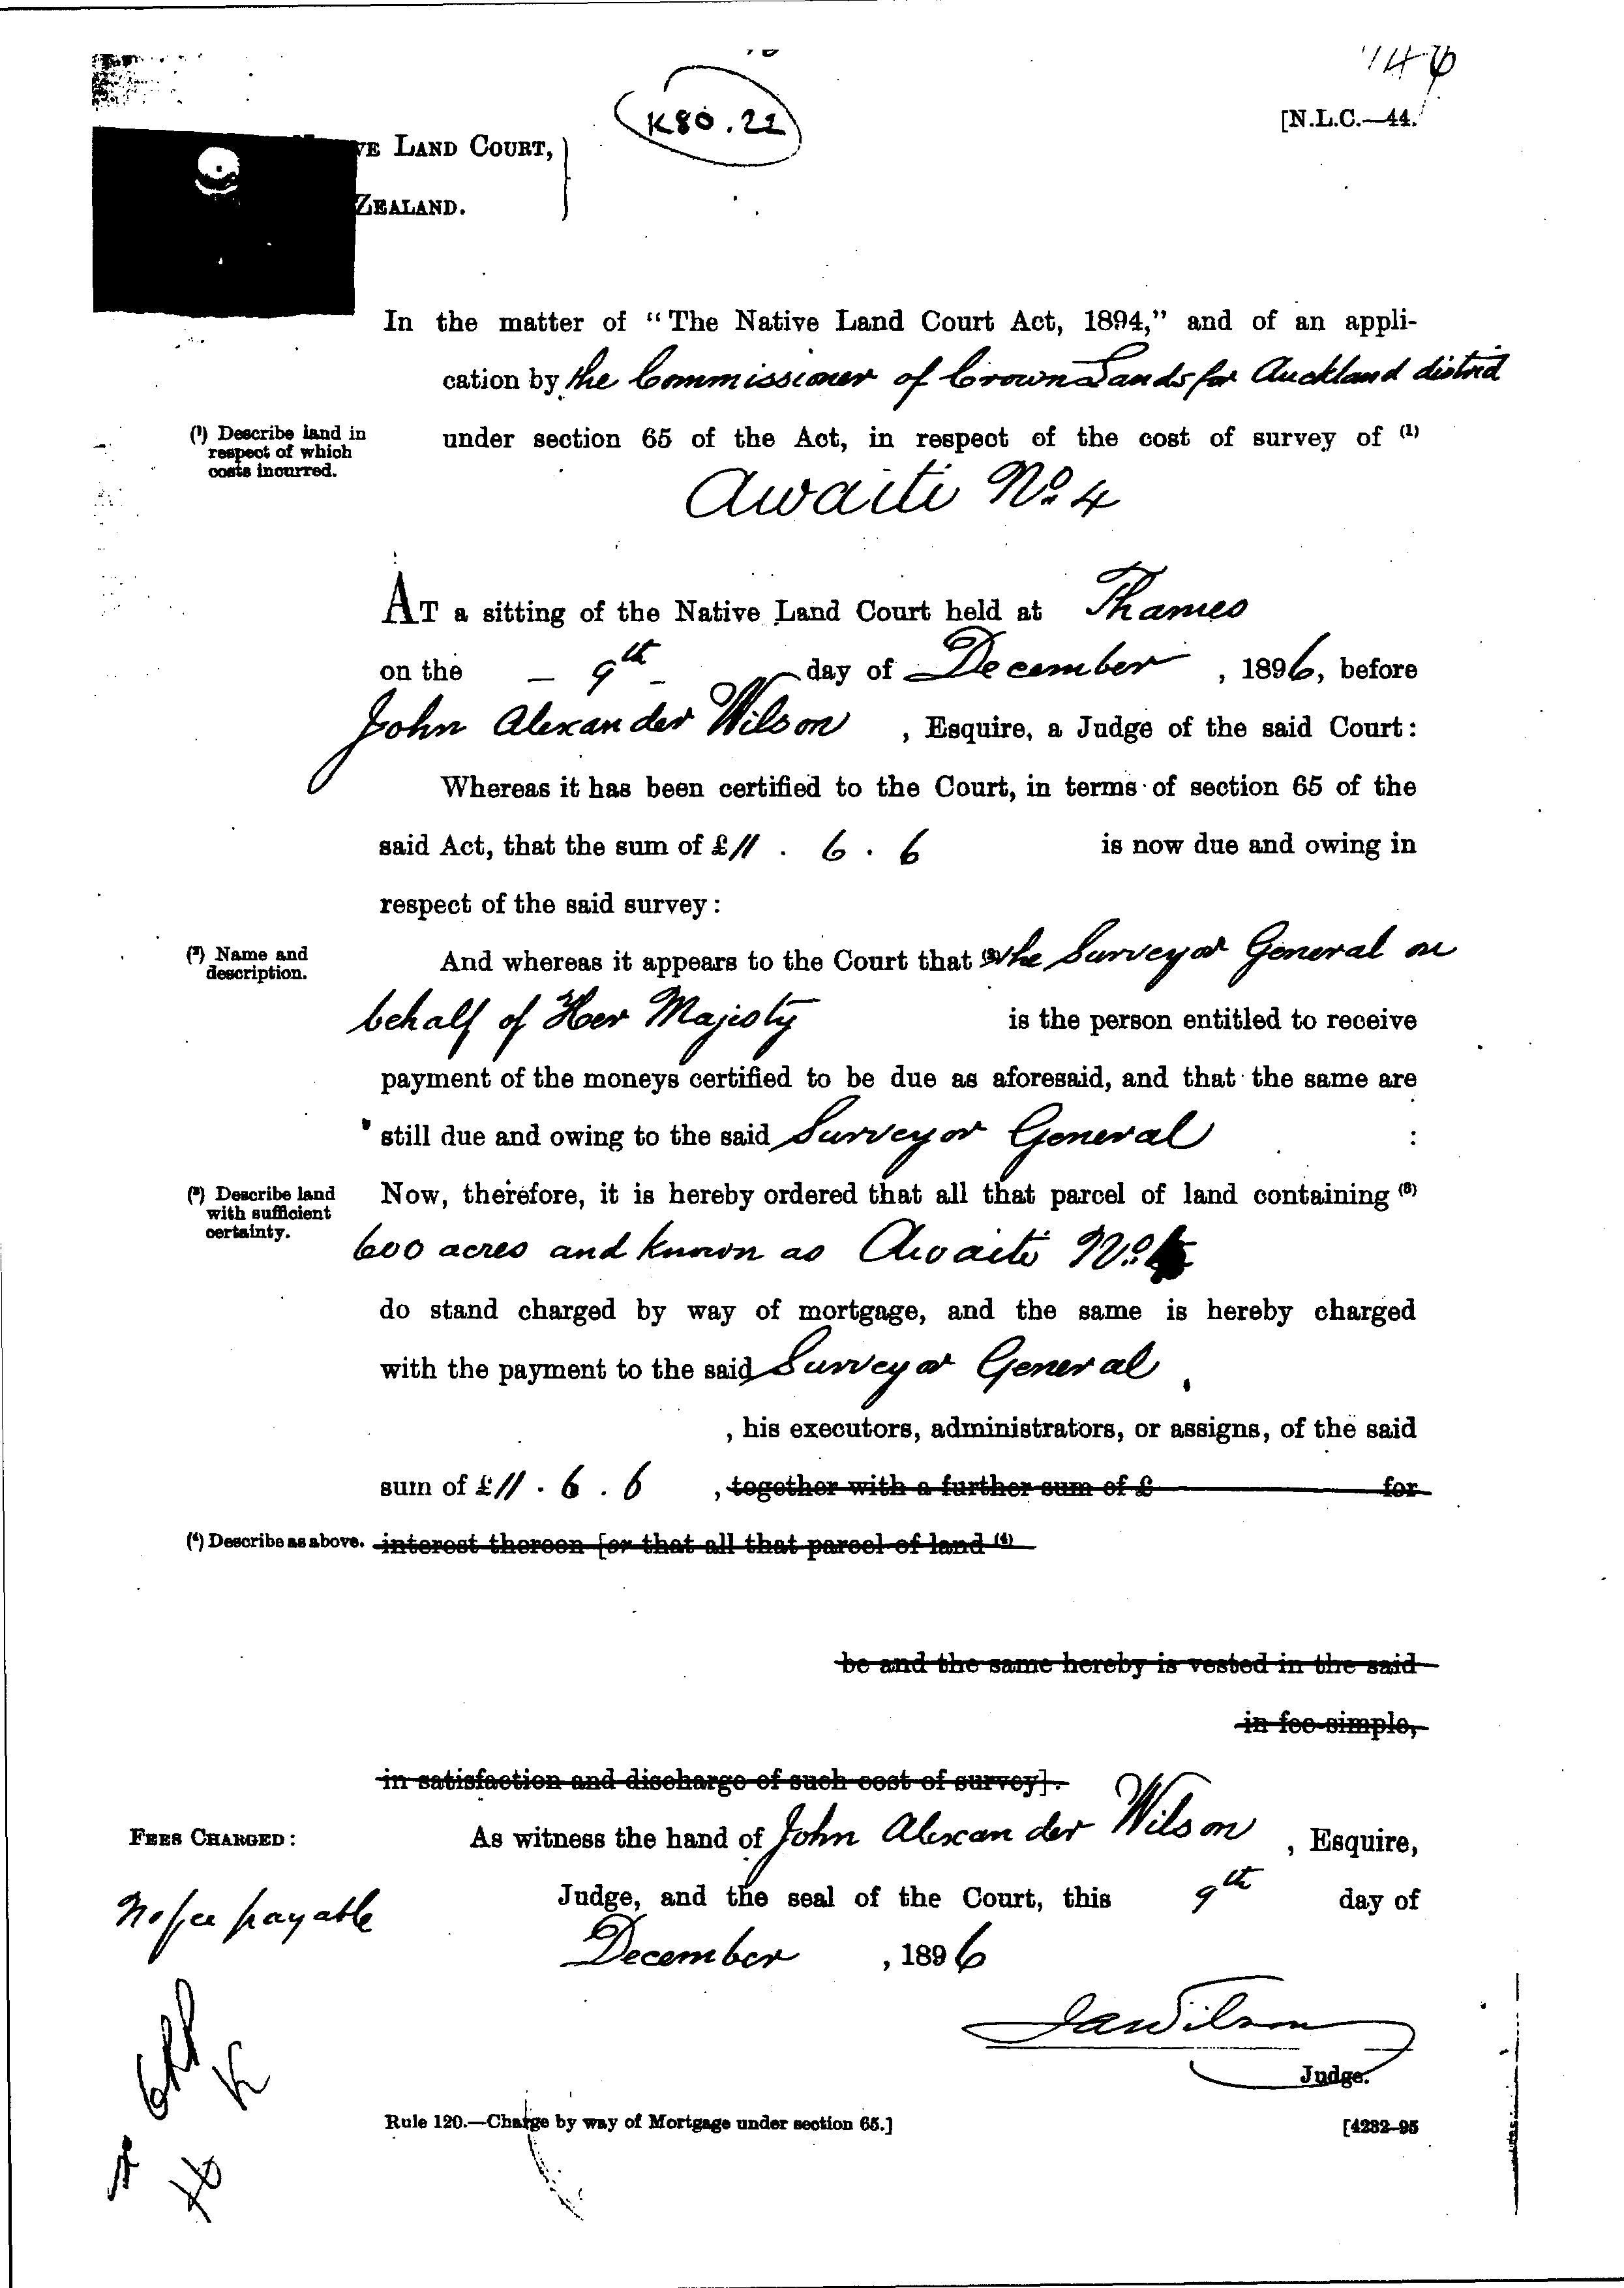 146
K80.22
[N.L.C.—44.
LAND COURT,
ZEALAND.
In the matter of "The Native Land Court Act, 1894," and of an appli-
cation by the Commissioner of Crown Lands for Auckland district
(1) Describe land in respect of which costs incurred.
under section 65 of the Act, in respect of the cost of survey of (1)
Awaiti No. 4
AT a sitting of the Native Land Court held at Thames
on the — 9th — day of December, 1896, before
John Alexander Wilson, Esquire, a Judge of the said Court:
Whereas it has been certified to the Court, in terms of section 65 of the
said Act, that the sum of £11 . 6 . 6 is now due and owing in
respect of the said survey:
(2) Name and description.
And whereas it appears to the Court that the Surveyor General on
behalf of Her Majesty is the person entitled to receive
payment of the moneys certified to be due as aforesaid, and that the same are
still due and owing to the said Surveyor General :
(3) Describe land with sufficient certainty.
Now, therefore, it is hereby ordered that all that parcel of land containing (3)
600 acres and known as Awaiti No.
do stand charged by way of mortgage, and the same is hereby charged
with the payment to the said Surveyor General,
, his executors, administrators, or assigns, of the said
sum of £11 . 6 . 6 , together with a further sum of £ for
(4) Describe as above.
interest thereon [or that all that parcel of land (4)
be and the same hereby is vested in the said
in fee-simple,
in satisfaction and discharge of such cost of survey].
FEES CHARGED:
As witness the hand of John Alexander Wilson, Esquire,
No fee payable
Judge, and the seal of the Court, this 9th day of
December, 1896
JAWilson
Judge.
Rule 120.—Charge by way of Mortgage under section 65.]
[4232–95